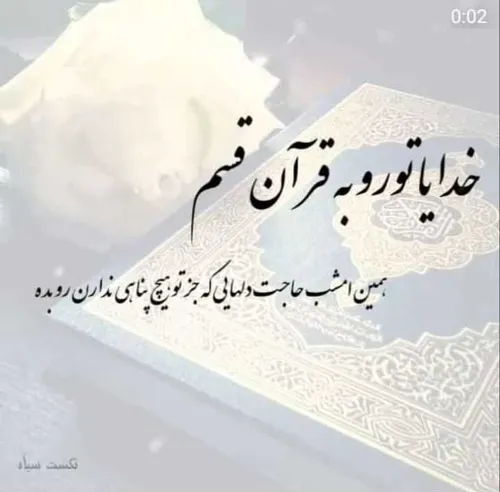 0:02
خدایا تو رو به قرآن قسم
همین امشب حاجت دلهایی که جز تو هیچ پناهی ندارن رو بده
تکست سیاه